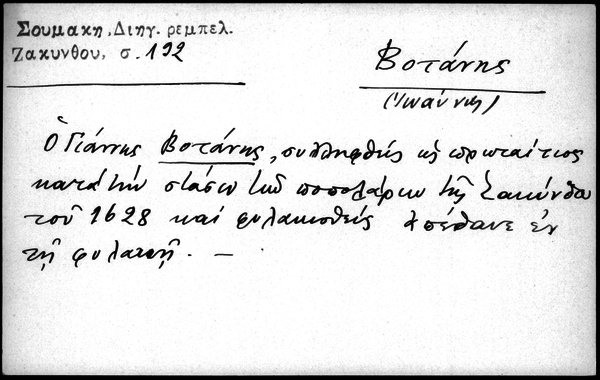 Σουμακη, Διηγ. ρεμπελ.
Ζακυνθου, σ. 192
Βοτάνης
(Ἰωάννης)
Ὁ Γιάννης Βοτάνης, συλληφθείς ὡς πρωταίτιος
κατά τήν στάσιν τῶν ποπολάρων τῆς Ζακύνθου
τοῦ 1628 καί φυλακισθείς ἀπέθανε ἐν
τῇ φυλακῇ. —